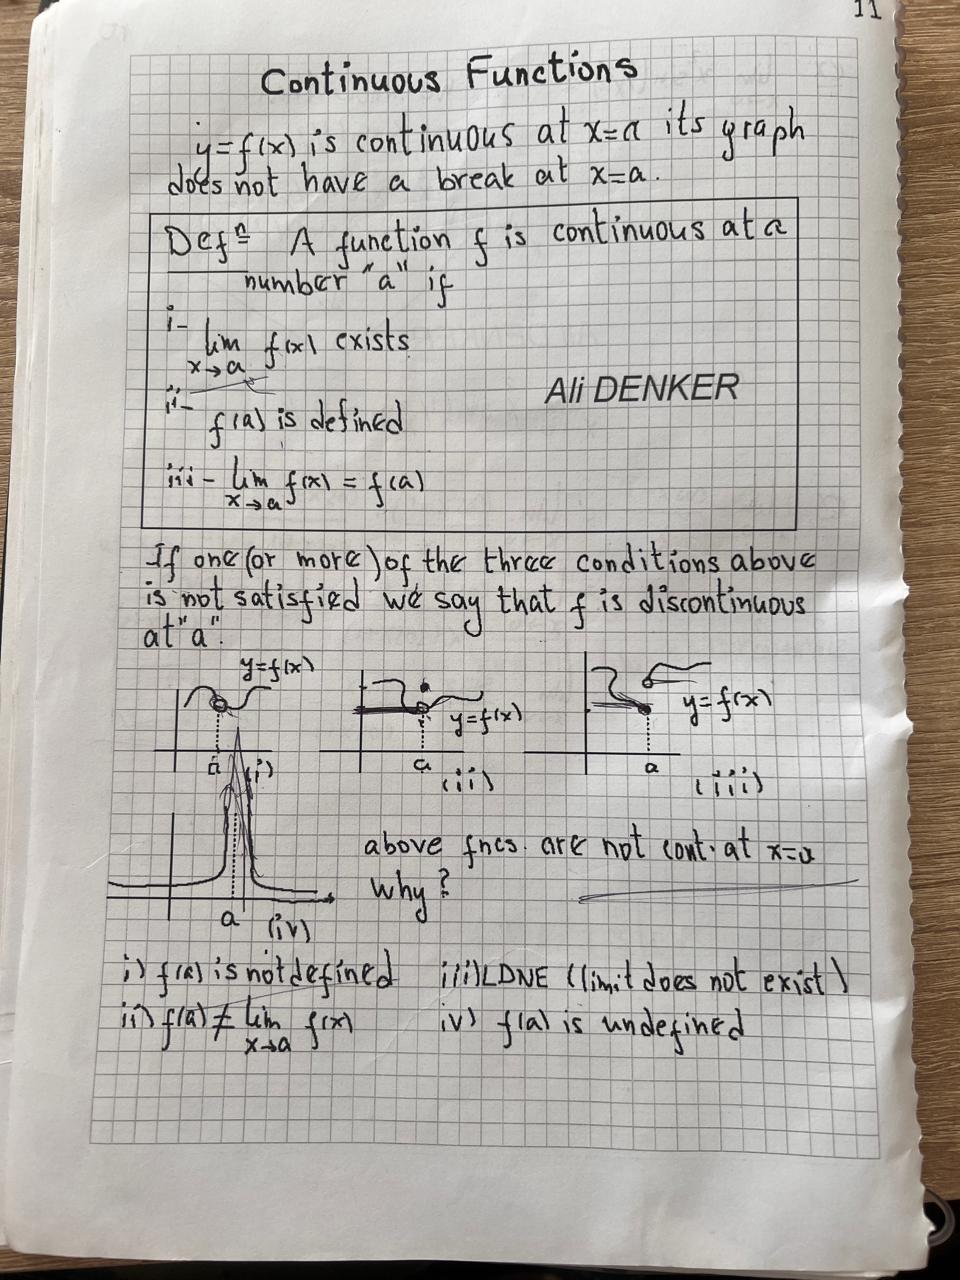 11
Continuous Functions
y=f(x) is continuous at x=a its graph
does not have a break at x=a.
Defⁿ A function f is continuous at a
number "a" if
i- lim f(x) exists
x→a
ii-
f(a) is defined
iii- lim f(x) = f(a)
x→a
Ali DENKER
If one (or more) of the three conditions above
is not satisfied we say that f is discontinuous
at "a".
y=f(x)
a
(i)
y=f(x)
a
(ii)
y=f(x)
a
(iii)
a
(iv)
above fncs. are not cont. at x=a
why?
i) f(a) is not defined
ii) f(a) ≠ lim f(x)
x→a
iii) LDNE (limit does not exist)
iv) f(a) is undefined